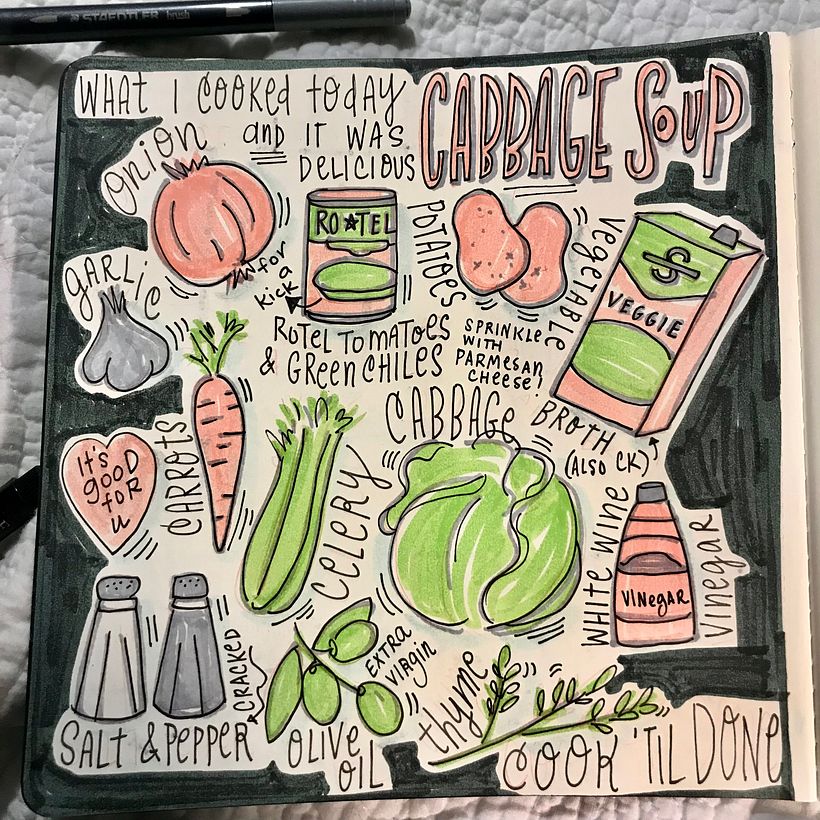 STAEDTLER brush
WHAT I COOKED TODAY
and IT WAS
DELICIOUS
CABBAGE SOUP
ONION
GARLIC
for
a
KICK
RO★TEL
ROTEL TOMATOES
& GREEN CHILES
POTATOES
SPRINKLE
WITH
PARMESAN
CHEESE!
VEGETABLE
VEGGIE
BROTH
(ALSO CK)
IT'S
good
foR
u
CARROTS
CELERY
CABBAGE
WHITE WINE
VINEGAR
VINEGAR
SALT & PEPPER
CRACKED
EXTRA
VIRGIN
OLIVE
OIL
thyme
COOK 'TIL DONE